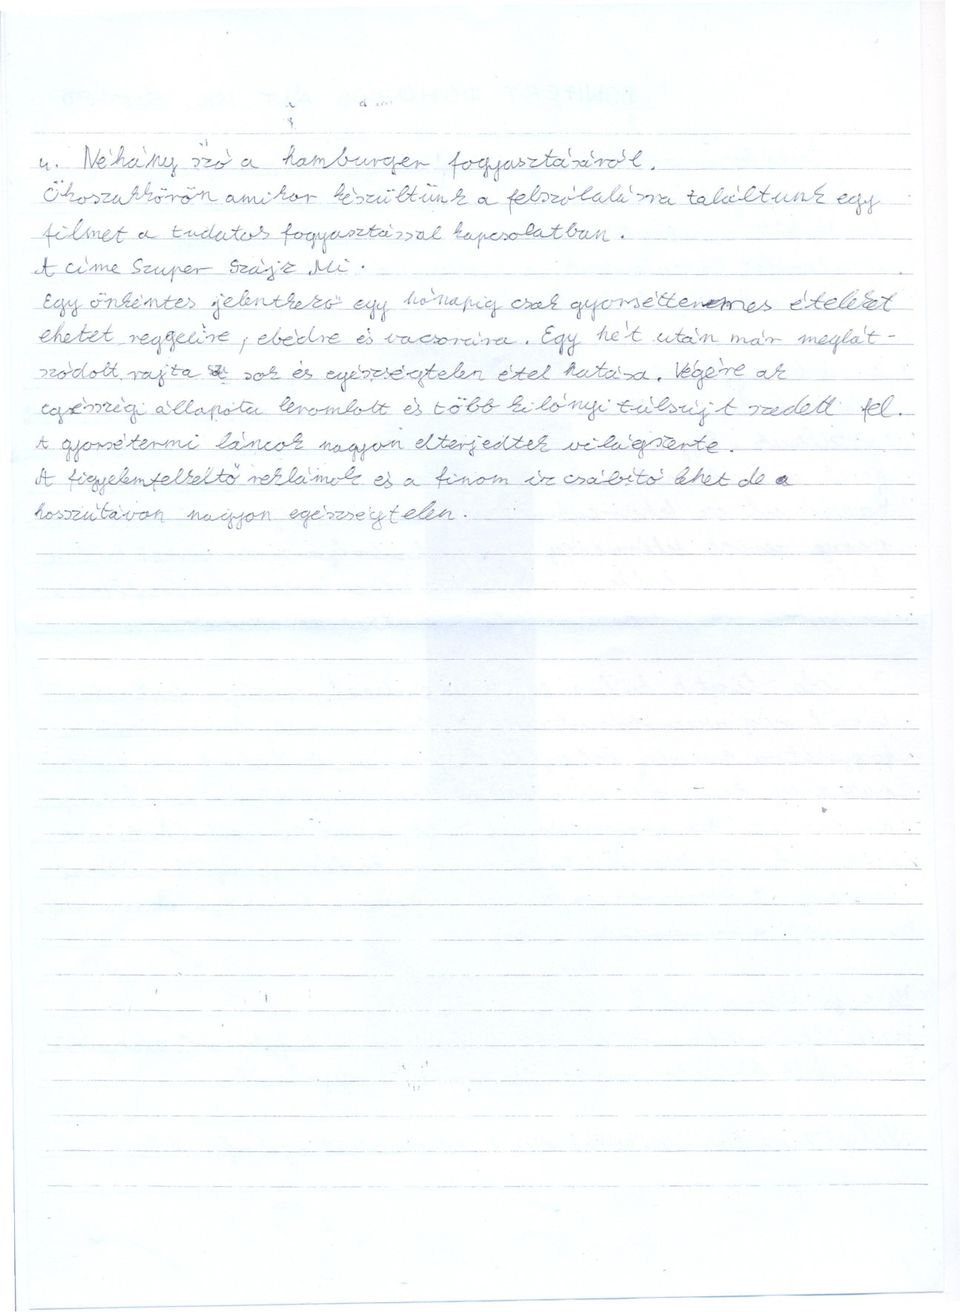 4. Néhány szó a hamburger fogyasztásáról.
Ökoszakkörön amikor készültünk a felszólalásra találtunk egy
filmet a tudatos fogyasztással kapcsolatban.
A címe Szuper Szájz Mi.
Egy önkéntes jelentkező egy hónapig csak gyorséttermes ételeket
ehetet reggelire, ebédre és vacsorára. Egy hét után már meglát-
szódott rajta sok és egészségtelen étel hatása. Végére az
egésszégi állapota leromlott és több kilónyi túlsújt szedett fel.
A gyorsétermi láncok nagyon elterjedtek világszerte.
A figyelemfelkeltő reklámok és a finom íz csábító lehet de
hosszútávon nagyon egészségtelen.